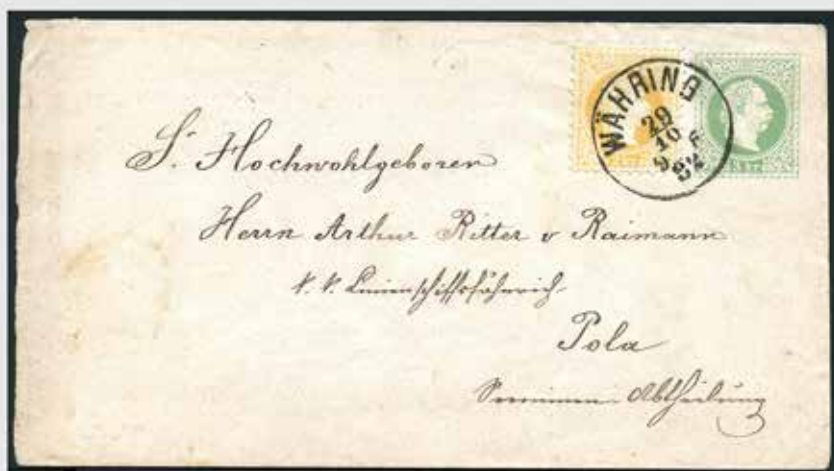 WÄHRING
29
10
9 F
82
2 KR
3 KR
Sr. Hochwohlgeboren
Herrn Arthur Ritter v Raimann
k. k. Linienschiffsfähnrich
Pola
Abtheilung